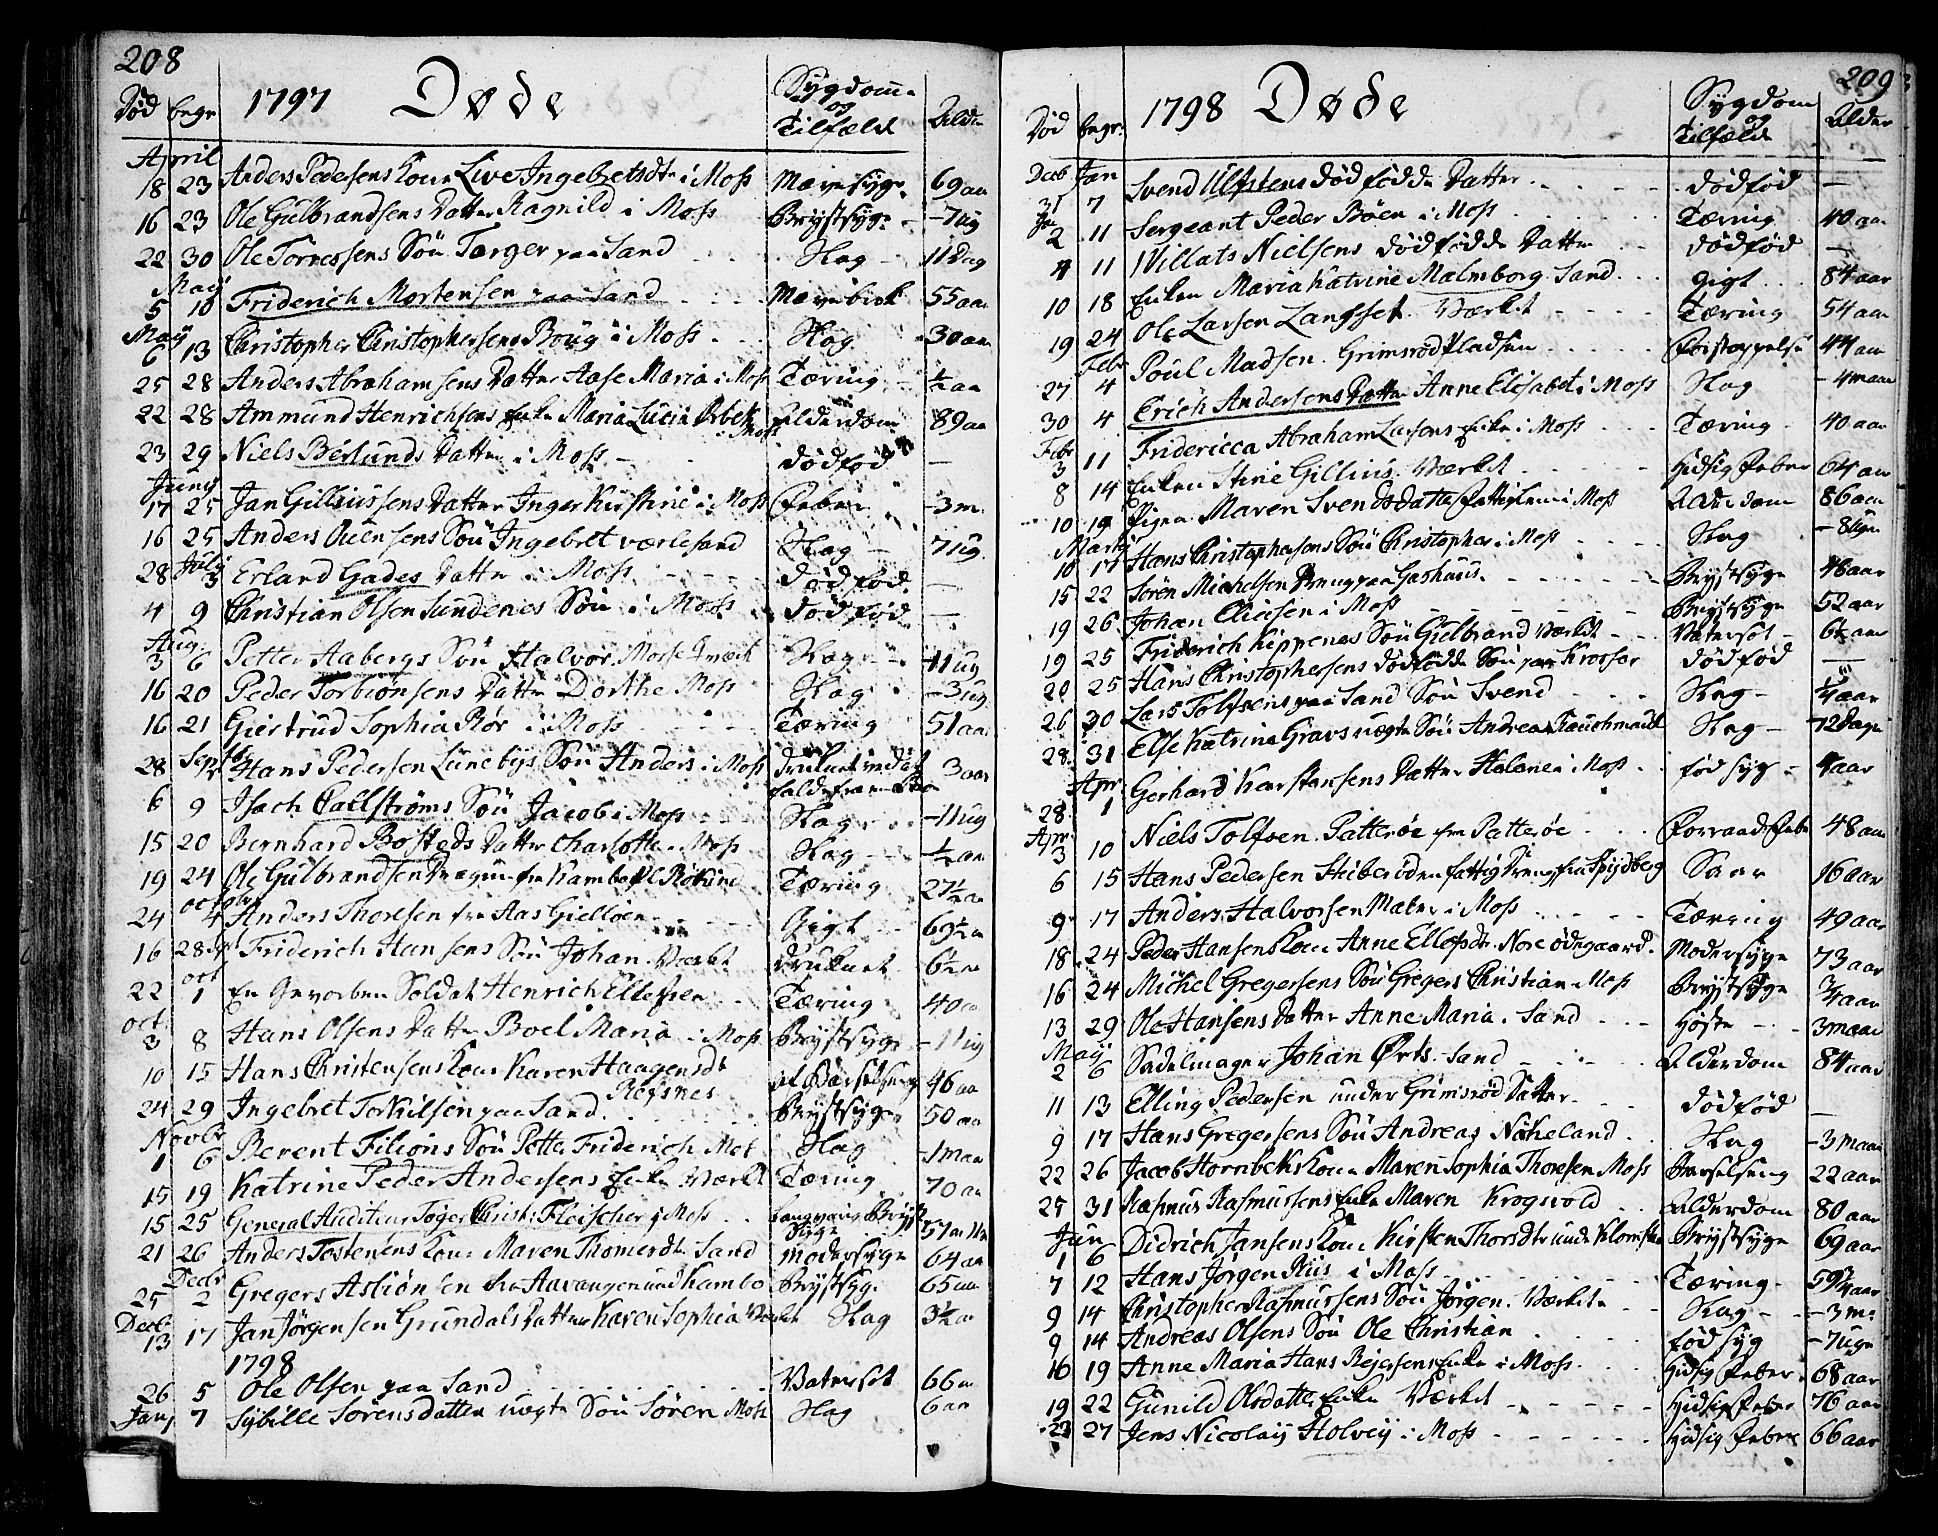 208
1797 Døde
Død begr Sygdom og Tilfælde Alder
April
18 23 Anders Pedersens Kone Live Ingebretsdtr i Moss Mavesyge 69 aar
16 23 Ole Gulbrandsens Datter Ragnild i Moss Brystsyge - 7 ug
22 30 Ole Torressens Søn Torger paa Sand Slag 11 Dag
Maij
5 10 Friderich Mortensen paa Sand 55 aar
Maij
6 13 Christopher Christophersens Boug i Moss Slag 30 aar
25 28 Anders Abrahamsens Datter Aase Maria i Moss Tæring ½ aar
22 28 Ammund Henrichsens Enke Maria Lucia Orbek i Moss Alderdom 89 aar
23 29 Niels Berlunds Datter i Moss dødfød —
Junij
17 25 Jan Gilliussens Datter Inger Kirstine i Moss Feber - 3 m
16 25 Anders Ouensens Søn Ingebret værlesand Slag - 7 ug
Julij
28 3 Erland Gades Datter i Moss dødfød —
4 9 Christian Olsen Sundenes Søn i Moss dødfød —
Aug.
3 6 Petter Aabergs Søn Halvor Slag - 11 ug
16 20 Peder Torbiönsens Datter Dorthe Moss Slag - 3 ug
16 21 Giertrud Sophia Rör i Moss Tæring 51 aar
Septb
28 Hans Pedersen Lunebÿs Søn Anders i Moss druknet ved at falde fra en 3 aar
6 9 Isach Callströms Søn Jacob i Moss Slag - 11 ug
15 20 Bernhard Bosteds Datter Charlotte Moss Slag ½ aar
19 24 Ole Gulbrandsen Dragun fra Kambo Tæring 27½ aar
octobr
24 4 Anders Thoresen fra Aas Giellöen Gigt 69½ a
16 28 Friderich Hansens Søn Johan Værket druknet 6½ aar
oct
22 1 En Gevorben Soldat Henrich Ellefsen Tæring 40 a
oct
3 8 Hans Olsens Datter Boel Maria i Moss Brystsyge - 11 ug
10 15 Hans Christensens Kone Karen Haagensdt Refsnes af Barselseng 46 aa
24 29 Ingebret Torkilsen paa Sand Brystsyge 50 aa
Novbr
1 6 Berent Filions Søn Petter Friderich Mos Slag - 1 maa
15 19 Katrine Peder Andersens Enke Værket Tæring 70 aa
15 25 General Auditeur Töger Christ: Fleischer i Moss langvarig Bryst Syge 57 aar
21 26 Anders Tostensens Kone Maren Thomesdtr Sand Modersyge 64 aa
Decbr
25 2 Gregers Asbiönsen fra Aavangen und Kambo Brystsyg. 65 aa
Decbr
13 17 Jan Jörgensen Grundals Datter Karen Sophia Værket Slag 3½ aa
1798
26 5 Ole Olsen paa Sand Vatersot 66 a
Janj 7 Sybille Sörensdatter uægte Søn Sören Moss Slag 6 aa
209
1798 Døde
Død begr: Sygdom og Tilfælde Alder
Deb Jan
31 7 Svend Ulfstens dødfödde Datter dødfød —
Jan
2 11 Sergeant Peder Böen i Moss Tæring 40 aar
4 11 Willats Nielsens dødfödde Datter dødfød —
10 18 Enken Maria Katrine Malmborg Sand Gigt 84 aar
19 24 Ole Larsen Langset Værket Tæring 54 aar
Febr
27 4 Poul Madsen Grimsrød Pladsen Forstoppelse 44 aar
30 4 Erich Andersens Datter Anne Elisabet i Moss Slag - 4 maan
Febr
3 11 Fridericca Abraham Larsens Enke i Moss Tæring 40 aar
8 14 Enken Stine Gillius Værket Hidsig Feber 64 aar
10 19 Pigen Maren Svendsdatter Fattiglem i Moss Alderdom 86 aar
Martij
10 17 Hans Christophersens Søn Christopher i Moss Slag - 8 uger
15 22 Sören Michelsen Dreng paa Gashuus Brystsyge 48 aar
19 26 Johan Eliæsen i Moss Brystsyge 52 aar
19 25 Friderich Kippenes Søn Gulbrand Værket Vatersot 6½ aar
20 25 Hans Christophersens dødfödde Søn paa Krosser dødfød —
26 30 Lars Tolfsens paa Sand Søn Svend Slag ¼ aar
28 31 Else Katrine Gravs uægte Søn Andreas Slag 12 dage
Apr.
28 1 Gerhard Karstensens Datter Helene i Moss födsyg 4 aar
Apr
3 10 Niels Tolfsen Patteröe fra Patteröe Forraadnelsesfeber 48 aar
6 15 Hans Pedersen fattig Dreng fra Spydberg Saar 16 aar
9 17 Anders Halvorsen i Moss Tæring 49 aar
18 24 Peder Hansens Kone Anne Ellefsdtr Nore ödegaard Modersyge 73 aar
16 24 Michel Gregersens Søn Gregers Christian Moss Brystsyge ¾ aar
13 29 Ole Hansens Datter Anne Maria Sand Hoste 3 maan
Maij
2 6 Sadelmager Johan Örts Sand Alderdom 84 aar
11 13 Elling Pedersen under Grimsrød Datter dødfød —
9 17 Hans Gregersens Søn Andreas Nökeland Slag - 3 maan
22 26 Jacob Hornbeks Kone Maren Sophia Thoresen Moss Barselseng 22 aar
25 31 Rasmus Rasmussens Enke Maren Krogsvold Alderdom 80 aar
Jun
1 6 Didrich Jansens Kone Kirsten Thorsdtr Brystsyge 69 aar
7 12 Hans Jörgen Riis i Moss Tæring 59¾ aar
9 14 Christopher Rasmussens Søn Jörgen Værket Slag - 3 m
9 14 Andreas Olsens Søn Ole Christian födsyg - 7 uge
16 19 Anne Maria Hans Rejersens Enke i Moss Hidsig Feber 68 aar
19 22 Gunild Olsdatter Enke Værket Hidsig Feber 76 aar
23 27 Jens Nicolaij Holveij i Moss Hidsig Feber 66 aar